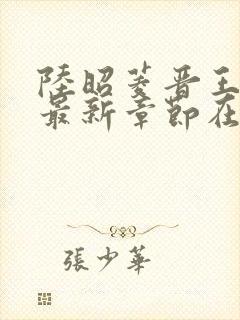 陸昭菱晋王
最新章節在
張少華